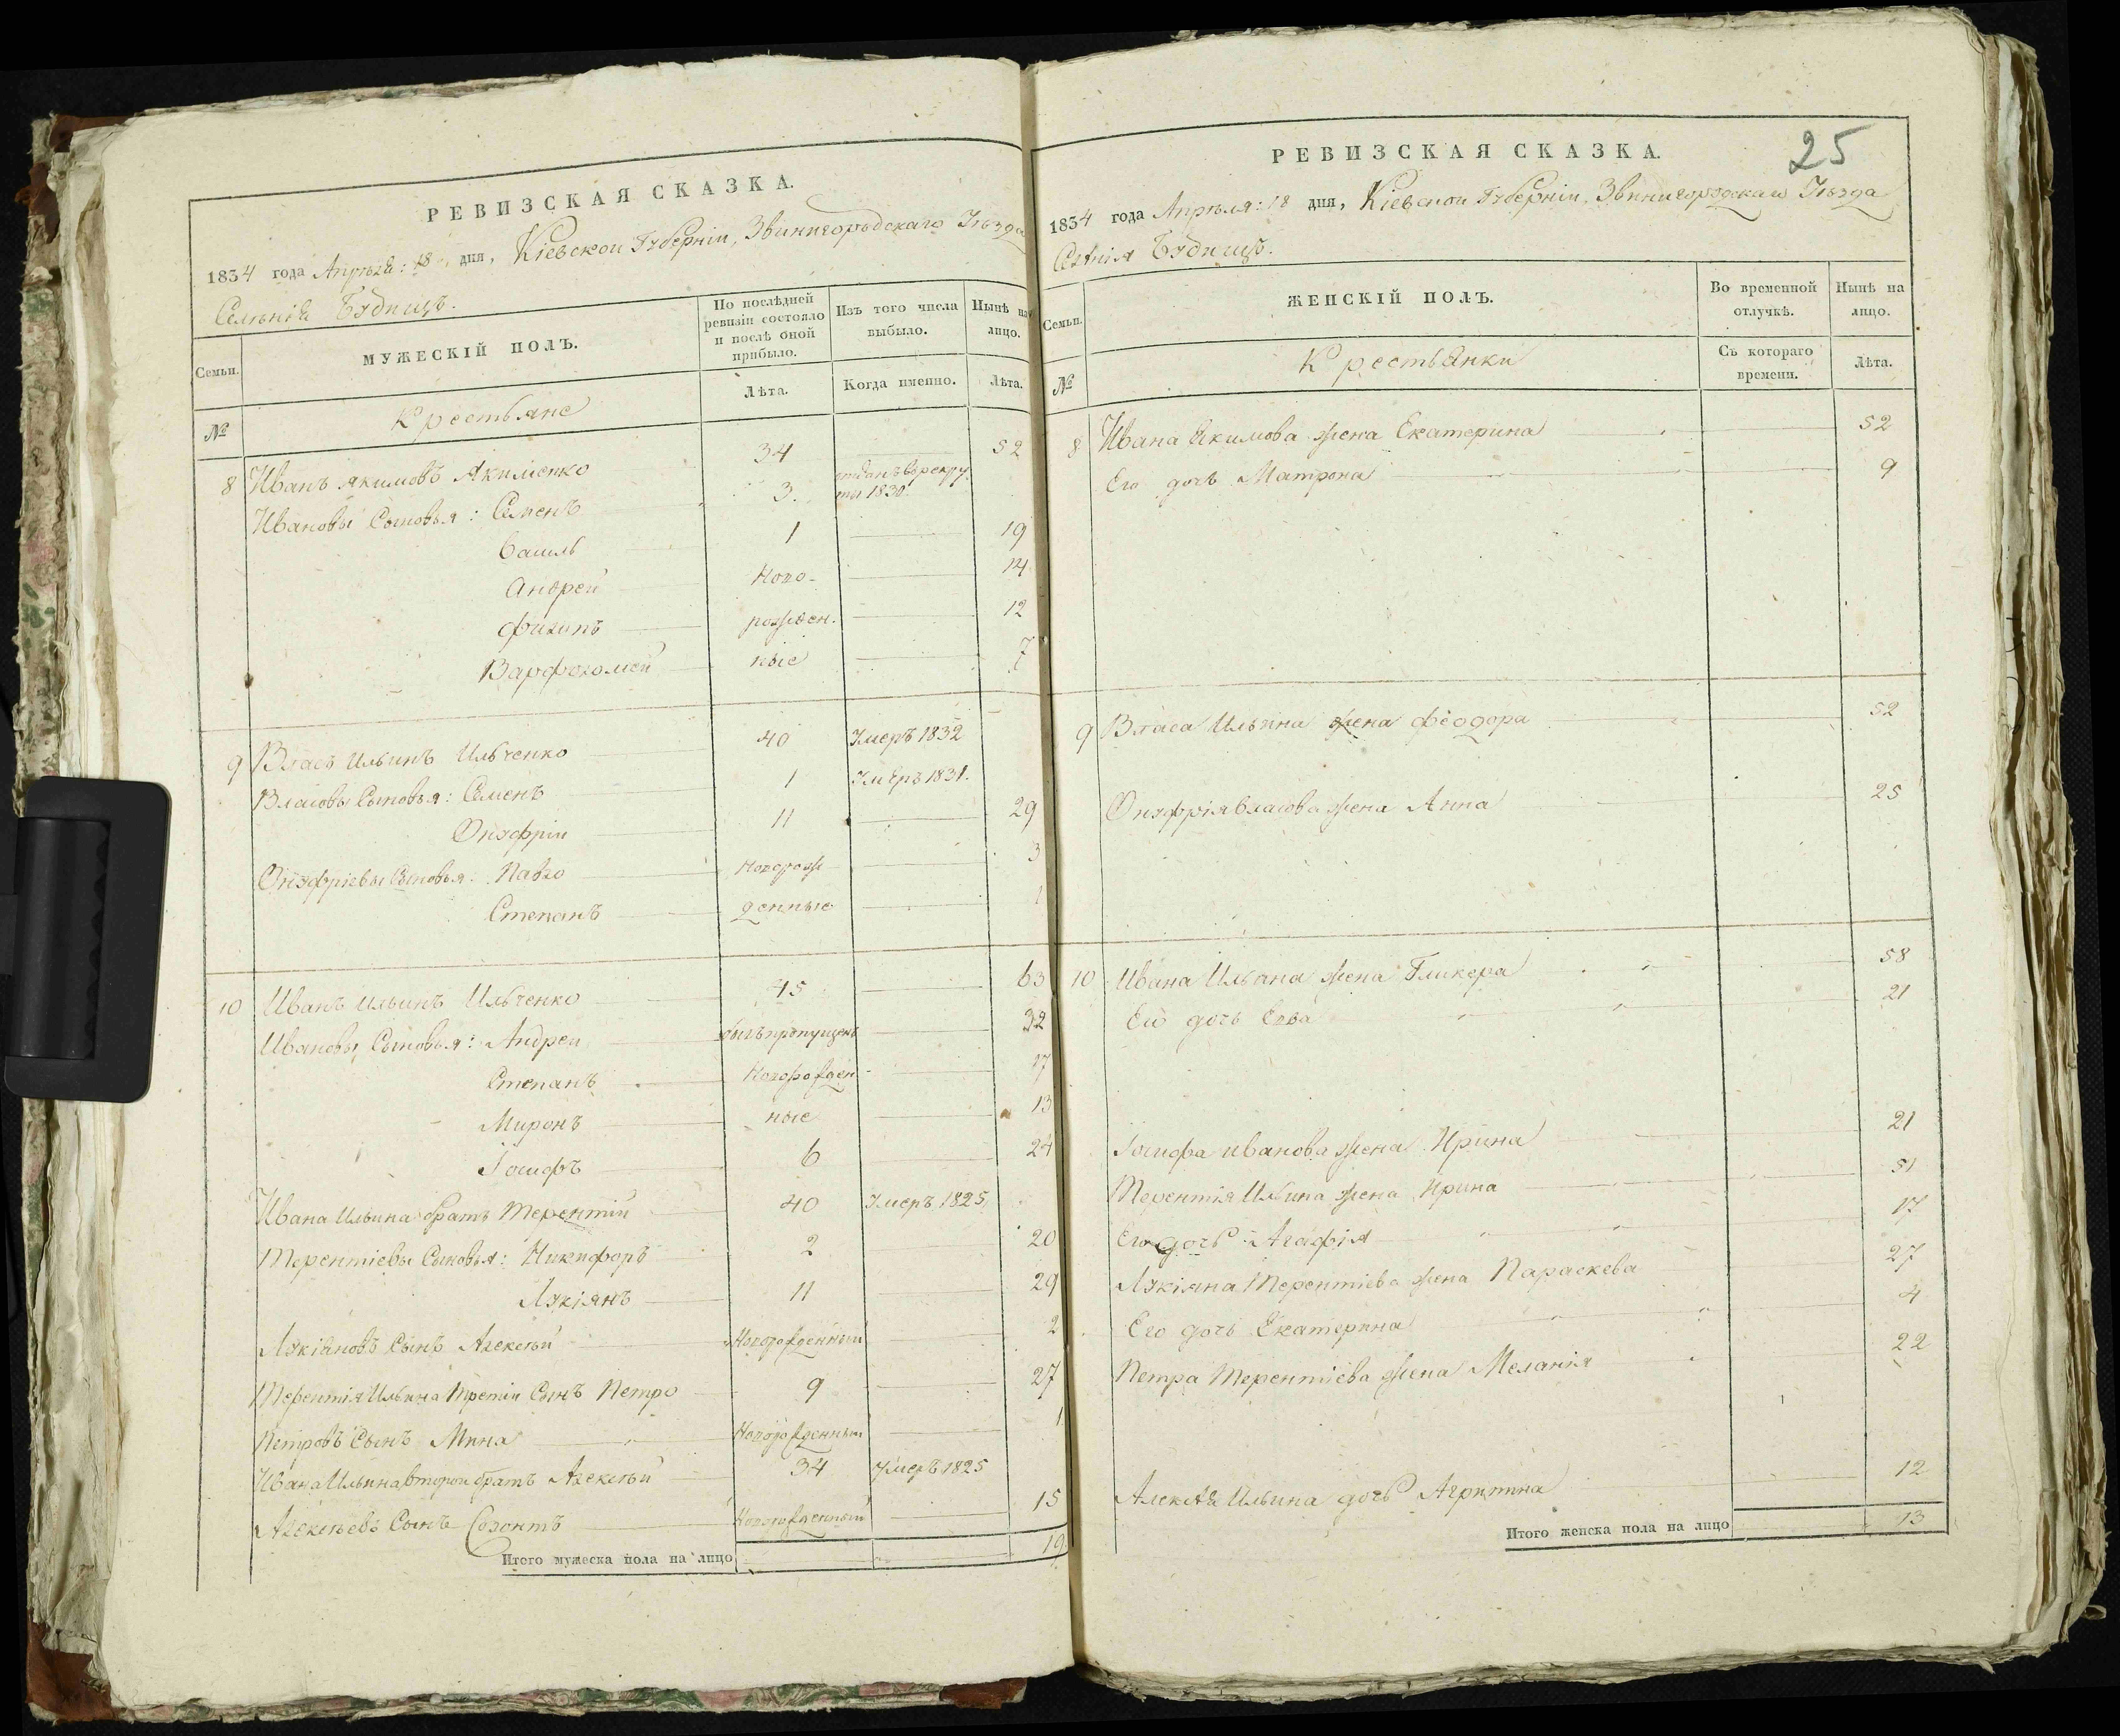 РЕВИЗСКАЯ СКАЗКА.
1834 года Апреля: 18 дня, Кіевской Губерніи, Звинигородскаго Уезда
Селенія Будищъ.
Семьи.
МУЖЕСКІЙ ПОЛЪ.
По послѣдней ревизіи состояло и послѣ оной прибыло.
Изъ того числа выбыло.
Нынѣ на лицо.
№
Крестьяне
Лѣта.
Когда именно.
Лѣта.
8 Иванъ Якимовъ Акименко 34 52
Ивановы Сыновья: Семенъ 3. отданъ въ рекруты 1830.
Василь 1 19
Андрей Ново- 14
Филипъ рожден. 12
Варфоломей ные 7
9 Власъ Ильинъ Ильченко 40 Умеръ 1832
Власовы Сыновья: Семенъ 1 Умеръ 1831.
Онуфрій 11 29
Онуфріевы Сыновья: Павло Новорож 3
Степанъ денные 1
10 Иванъ Ильинъ Ильченко 45 63
Ивановы Сыновья: Андрей былъ пропущенъ 32
Степанъ Новорожден- 17
Миронъ ные 13
Іосифъ 6 24
Ивана Ильина братъ Терентій 40 Умеръ 1825
Терентіевы Сыновья: Никифоръ 2 20
Лукіянъ 11 29
Лукіановъ Сынъ Алексѣй Новорожденный 2
Терентія Ильина третій Сынъ Петро 9 27
Петровъ Сынъ Мина Новорожденный 1
Ивана Ильина второй братъ Алексѣй 34 Умеръ 1825
Алексѣевъ Сынъ Созонтъ Новорожденный 15
Итого мужеска пола на лицо 19
25
РЕВИЗСКАЯ СКАЗКА.
1834 года Апрѣля: 18 дня, Кіевской Губерніи, Звинигородскаго Уѣзда
Селѣнія Будищъ.
Семьи.
ЖЕНСКІЙ ПОЛЪ.
Во временной отлучкѣ.
Нынѣ на лицо.
№
Крестьянки
Съ котораго времени.
Лѣта.
8 Ивана Якимова жена Екатерина 52
Его дочь Матрона 9
9 Власа Ильина жена Феодора 52
Онуфрія Власова жена Анна 25
10 Ивана Ильина жена Гликера 58
Его дочь Евва 21
Іосифа Иванова жена Ирина 21
Терентія Ильина жена Ирина 51
Его дочь Агафія 17
Лукіяна Терентіева жена Параскева 27
Его дочь Екатерина 4
Петра Терентіева жена Меланія 22
Алексѣя Ильина дочь Агрипина 12
Итого женска пола на лицо 13